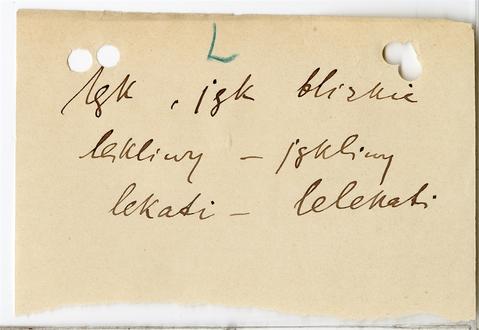 L
lęk , jęk blizkie
lękliwy – jękliwy
lekati – lelekati